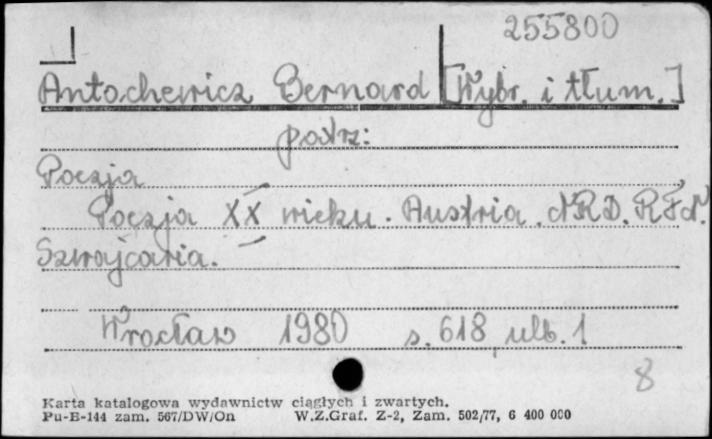 255800
Antochewicz Bernard [Wybr. i tłum.]
patrz:
Poezja
Poezja XX wieku. Austria. NRD. RFN.
Szwajcaria.
Wrocław 1980 s. 618, ulb. 1
8
Karta katalogowa wydawnictw ciągłych i zwartych.
Pu-B-144 zam. 567/DW/On W.Z.Graf. Z-2, Zam. 502/77, 6 400 000